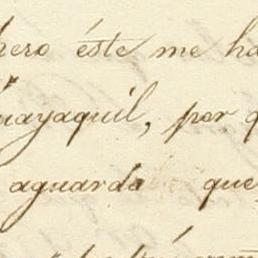 pero éste me ha
uayaquil, por q
aguarda que